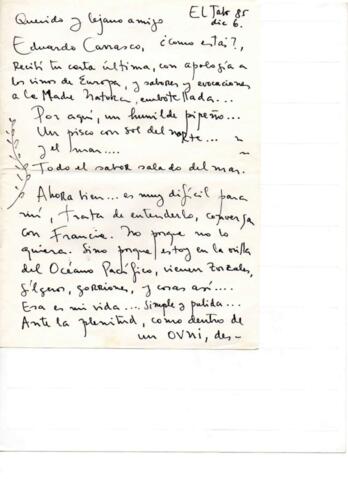 El Tabo 85
dic 6.
Querido y lejano amigo
Eduardo Carrasco, ¿como está?,
Recibí tu carta última, con apología a
los vinos de Europa, y sabores y evocaciones
a la Madre Natura, embotellada...
Por aquí, un humilde pipeño...
Un pisco con sol del norte...
y el mar....
Todo el sabor salado del mar.
Ahora bien... es muy difícil para
mí, trata de entenderlo, conversar
con Francia. No porque no lo
quiera. Sino porque estoy en la orilla
del Océano Pacífico, vienen Zorzales,
jilgueros, gorriones, y cosas así....
Esa es mi vida.... simple y pulida...
Ante la plenitud, como dentro de
un OVNI, des-